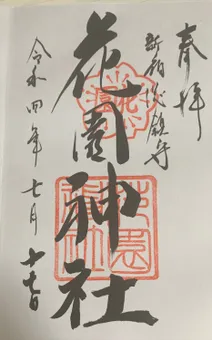 奉拝
新宿総鎮守
花園神社
令和四年七月十七日
花園神社